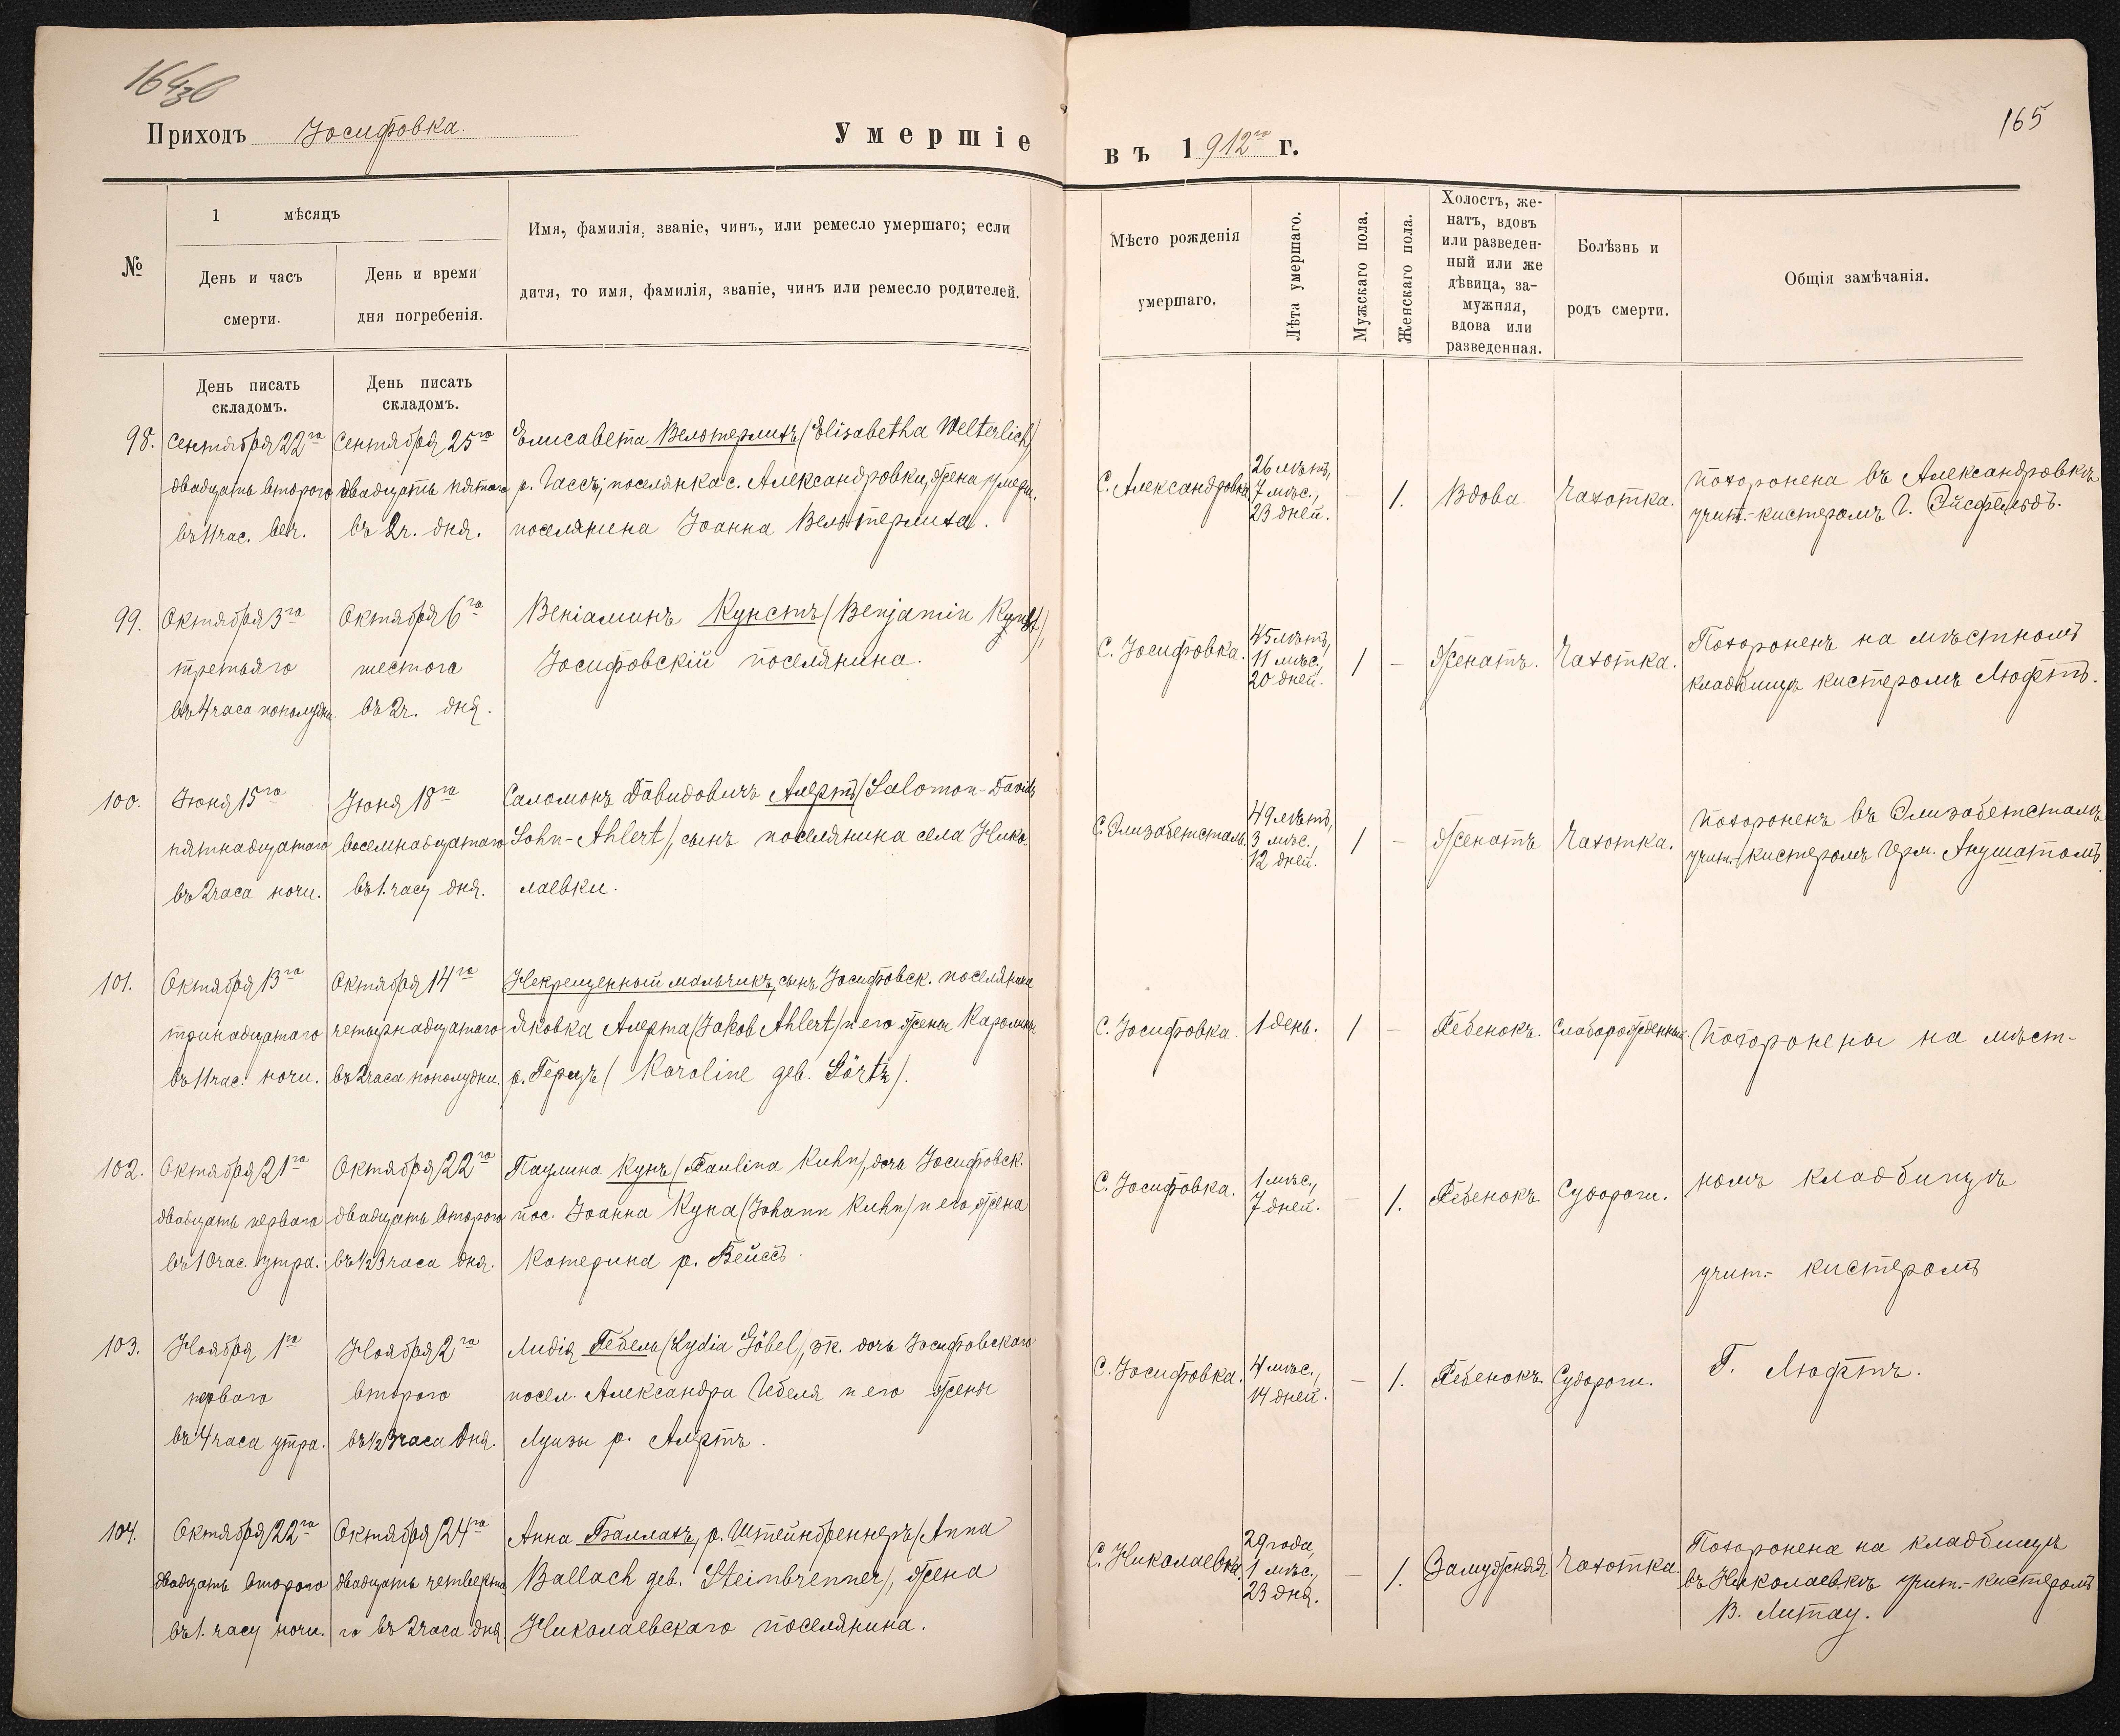 164об
165
Приходъ Іосифовка. Умершіе въ 1912го г.
№
1 мѣсяцъ
День и часъ
смерти.
День и время
дня погребенія.
Имя, фамилія, званіе, чинъ, или ремесло умершаго; если
дитя, то имя, фамилія, званіе, чинъ или ремесло родителей.
Мѣсто рожденія
умершаго.
Лѣта умершаго.
Мужскаго пола.
Женскаго пола.
Холостъ, же-
натъ, вдовъ
или разведен-
ный или же
дѣвица, за-
мужняя,
вдова или
разведенная.
Болѣзнь и
родъ смерти.
Общія замѣчанія.
День писать
складомъ.
День писать
складомъ.
98.
Сентября 22го
двадцать второго
въ 11 час. веч.
Сентября 25го
двадцать пятаго
въ 2 ч. дня.
Елисавета Вельтерлихъ (Elisabetha Welterlich)
р. Гассъ, поселянка с. Александровки, жена умерш.
поселянина Іоанна Вельтерлиха.
С. Александровка
26 лѣтъ,
7 мѣс.,
23 дней.
— 1.
Вдова.
Чахотка.
Похоронена въ Александровкѣ
учит.-кистеромъ Г. Эйсфельдъ.
99.
Октября 3го
третьяго
въ 4 часа пополудни.
Октября 6го
шестого
въ 2 ч. дня.
Веніаминъ Кунстъ (Benjamin Kunst),
Іосифовскій поселянина.
С. Іосифовка.
45 лѣтъ,
11 мѣс.,
20 дней.
1 —
Женатъ.
Чахотка.
Похороненъ на мѣстномъ
кладбищѣ кистеромъ Люфтъ.
100.
Іюня 15го
пятнадцатаго
въ 2 часа ночи.
Іюня 18го
восемнадцатаго
въ 1. часу дня.
Саломонъ Давидовичъ Алертъ (Salomon-Davids
Sohn-Ahlert), сынъ поселянина села Нико-
лаевки.
С. Элизабетсталь.
49 лѣтъ,
3 мѣс.,
12 дней.
1 —
Женатъ
Чахотка.
Похороненъ въ Элизабетсталѣ
учит.-кистеромъ Герм. Анушатомъ.
101.
Октября 13го
тринадцатаго
въ 11 час. ночи.
Октября 14го
четырнадцатаго
въ 2 часа пополудни.
Некрещенный мальчикъ, сынъ Іосифовск. поселянина
Яковка Алерта (Jakob Ahlert) и его жены Каролины
р. Герцъ (Karoline geb. Görtz).
С. Іосифовка.
1 день.
1 —
Ребенокъ.
Слаборожденный.
Похоронены на мѣст-
102.
Октября 21го
двадцать перваго
въ 10 час. утра.
Октября 22го
двадцать второго
въ ½3 часа дня.
Паулина Кунъ (Paulina Kuhn), дочь Іосифовск.
пос. Іоанна Куна (Johann Kuhn) и его жена
Катерина р. Вейссъ.
С. Іосифовка.
1 мѣс.,
7 дней.
— 1.
Ребенокъ
Судороги.
номъ кладбищѣ
учит.- кистеромъ
103.
Ноября 1го
перваго
въ 4 часа утра.
Ноября 2го
второго
въ ½3 часа дня.
Лидія Гебель (Lydia Göbel), зк. дочь Іосифовскаго
посел. Александра Гебеля и его жены
Луизы р. Алертъ.
С. Іосифовка.
4 мѣс.,
14 дней.
— 1.
Ребенокъ.
Судороги.
Г. Люфтъ.
104.
Октября 22го
двадцать второго
въ 1. часу ночи.
Октября 24го
двадцать четверта
го въ 2 часа дня
Анна Баллахъ, р. Штейнбреннеръ (Anna
Ballach geb. Steinbrenner), жена
Николаевскаго поселянина.
С. Николаевка.
29 года,
1 мѣс.,
23 дня.
— 1.
Замужняя
Чахотка.
Похоронена на кладбищѣ
въ Николаевкѣ учит.-кистеромъ
В. Литау.